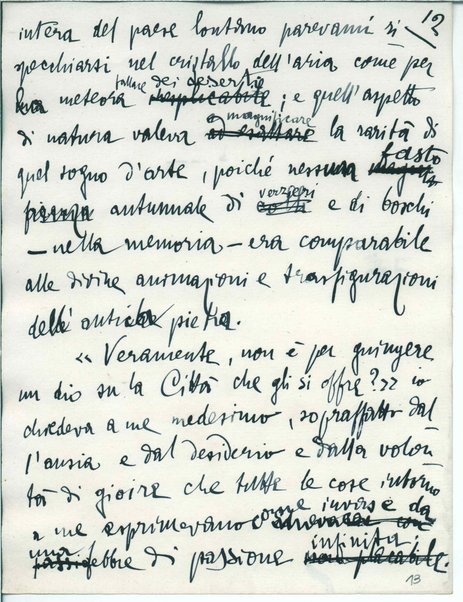 12
intera del paese lontano parevami si
specchiarsi nel cristallo dell'aria come per
meteora fallace dei deserti; e quell'aspetto
di natura valeva a magnificare la rarità di
quel sogno d'arte, poiché nessun fasto
autunnale di verzieri e di boschi
– nella memoria – era comparabile
alle divine animazioni e trasfigurazioni
dell'antica pietra.
« Veramente, non è per giungere
un dio su la Città che gli si offre? » io
chiedeva a me medesimo, sopraffatto dal
l'ansia e dal desiderio e dalla volon
tà di gioire che tutte le cose intorno
a me esprimevano come invase da
una febbre di passione infinita;
13